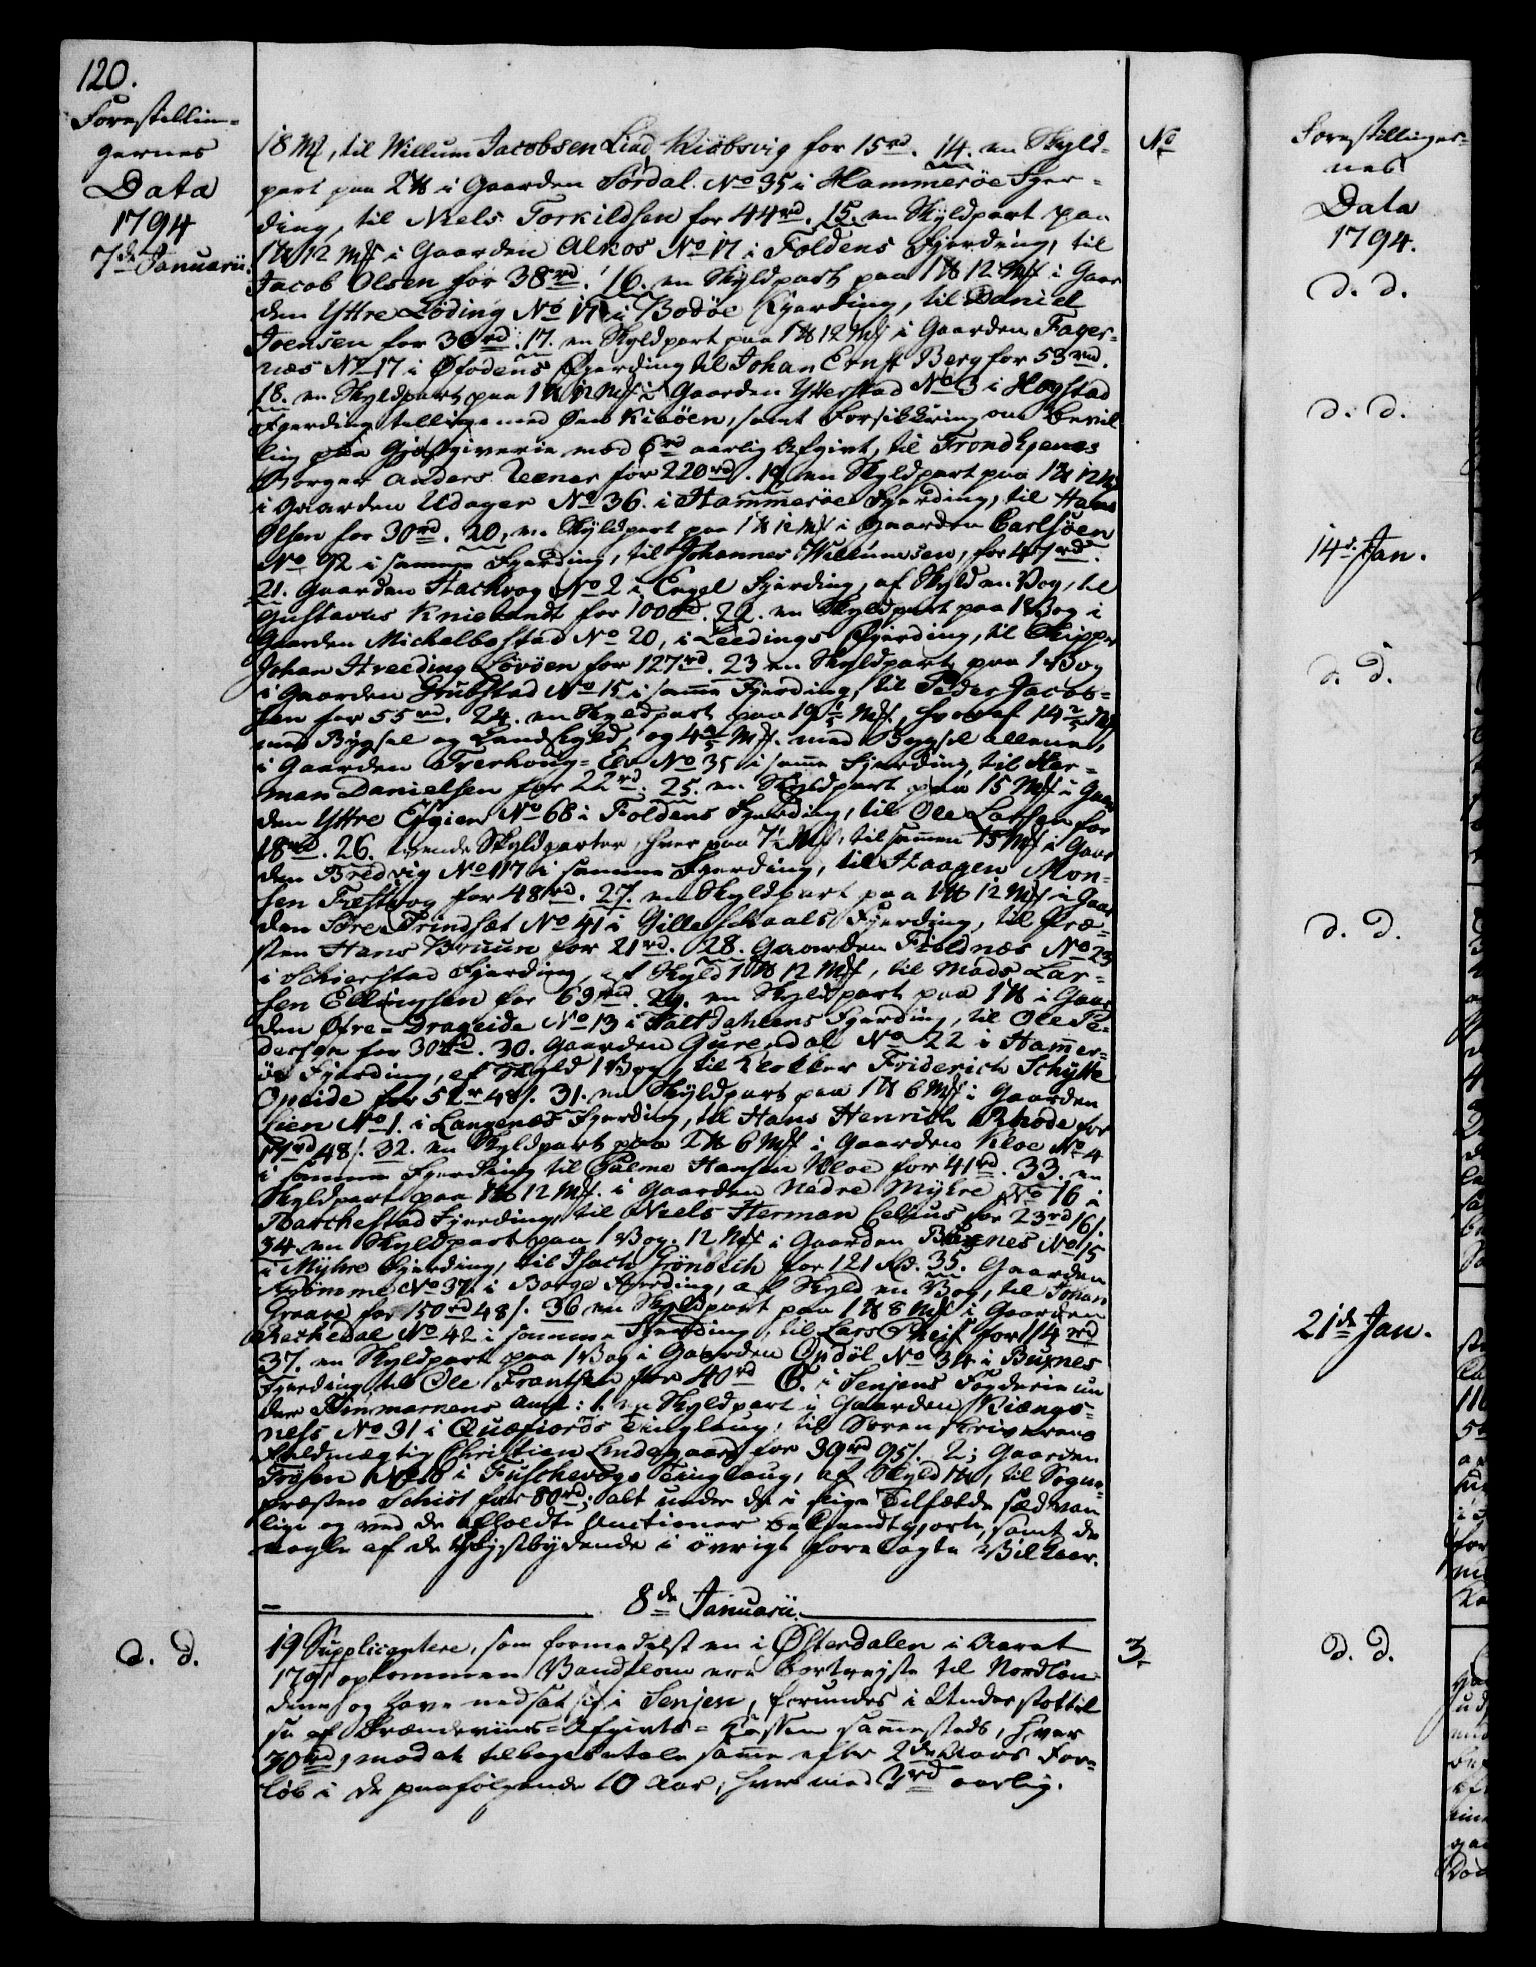 120.
Forestillin-
gernes
Data
1794
7de Januarii.
18 Mk, til Willum Jacobsen Lind Kiöbsvig for 15rd. 14. en Skyld-
part paa 2 ℔ i Gaarden Sördal No 35 i Hammeröe Fjer-
ding, til Niels Torkildsen for 44rd. 15. en Skyldpart paa
1 ℔ 12 Mk i Gaarden Alkos No 17 i Foldens Fjerding, til
Jacob Olsen for 38rd. 16. en Skyldpart paa 1 ℔ 12 Mk i Gaar
den Yttre Löding No 17 i Bodöe Fjerding, til Daniel
Joensen for 30rd. 17. en Skyldpart paa 1 ℔ 12 Mk i Gaarden Fager-
næs No 17 i Ofodens Fjerding til Johan Ernst Berg for 53rd.
18. en Skyldpart paa 1 ℔ 12 Mk i Gaarden Ytterstad No 3 i Hogstad
Fjerding tilligemed Öen Kiöen, samt Forsikkring om Bevil
ling paa Gjæstgiverie mod 6rd aarlig Afgivt, til Trondhjems
Borger Anders for 220rd. 19. en Skyldpart paa 1 ℔ 12 Mk
i Gaarden Udager No 36 i Hammeröe Fjerding, til Hans
Olsen for 30rd. 20. en Skyldpart paa 1 ℔ 12 Mk i Gaarden Carlsöen
No 92 i samme Fjerding, til Johannes Willumsen, for 47rd.
21. Gaarden Hackvog No 2 i Engel Fjerding, af Skyld en Vog, til
Gustavus for 100rd. 22. en Skyldpart paa 1 Vog i
Gaarden Michelbostad No 20, i Leedings Fjerding, til Skipper
Johan Hveeding Lövöen for 127rd. 23 en Skyldpart paa 1 Vog
i Gaarden Grubstad No 15 i samme Fjerding, til Peder Jacob-
sen for 55rd. 24. en Skyldpart paa 19 1/5 Mk, hvoraf 14 2/5 Mk
med Bygsel og Landskyld, og 4 4/5 Mk. med Bygsel allene,
i Gaarden Trerhoug-Ev No 35 i samme Fjerding, til Her-
man Danielsen for 22rd. 25. en Skyldpart paa 15 Mk i Gaar
den Yttre No 68 i Foldens Fjerding, til Ole Larsen for
48rd. 26. tvende Skyldparter, hver paa 7 1/2 Mk, tilsammen 15 Mk i Gaar
den Bredvig No 117 i samme Fjerding, til Haagen Mon-
sen Festvog for 48rd. 27. en Skyldpart paa 1 ℔ 12 Mk i Gaar
den Söre Trindsæt No 41 i Gilleskaals Fjerding, til Præ-
sten Hans Bruun for 21rd. 28. Gaarden Fieldnæs No 23
i Schierstad Fjerding, af Skyld 1 ℔ 12 Mk, til Mads Lar-
sen Ellingsen for 69rd. 29. en Skyldpart paa 1 ℔ i Gaar
den Öfre-Drageide No 13 i Saltdahlens Fjerding, til Ole Pe-
dersen for 30rd. 30. Gaarden Qurendal No 22 i Hammer-
öe Fjerding, af Skyld 1 Vog, til Klokker Friderich Schytte
Opeide for 52rd 48 s. 31. en Skyldpart paa 1 ℔ 6 Mk i Gaarden
Lien No 1. i Langenæs Fjerding, til Hans Henrich Rhode for
17rd 48 s. 32. en Skyldpart paa 2 ℔ 6 Mk i Gaarden Kloe No 4
i samme Fjerding til Palme Hansen Kloe for 41rd. 33. en
Skyldpart paa 1 ℔ 12 Mk. i Gaarden Nedre Myhre No 16 i
Barchestad Fjerding, til Niels Herman Celius for 23rd 16 s.
34. en Skyldpart paa 1 Vog. 12 Mk i Gaarden Buxnes No 15
i Myhre Fjerding, til Isach Grönbech for 121 Rd. 35. Gaarden
Römme No 37. i Borge Fjerding, af Skyld en Vog, til Johan
Graae for 150rd 48 s. 36 en Skyldpart paa 1 ℔ 8 Mk i Gaarden
Reckedal No 42 i samme Fjerding, til Lars Rejst for 114rd
37. en Skyldpart paa 1 Vog i Gaarden Opdöl No 34 i Buxnes
Fjerding til Ole Frantsen for 40rd C. i Senjens Fogderie un
der Finmarkens Amt: 1. en Skyldpart i Gaarden Kiængs-
næs No 31 i Quæfiords Tinglaug, til Sorenskriverens
Fuldmægtig Christien Lindegaard for 39rd 95 s. 2; Gaarden
Tröjen No 8 i Fuschevogs Tinglaug, af Skyld 1 ℔, til Sogne-
præsten Schiöt for 80rd; alt under de i slige Tilfælde sædvan-
lige og ved de afholdte Auctioner bekiendtgjorte, samt de
nogle af de Höjstbydende i övrigt forelagte Vilkaar.
8de Januarii.
d. d.
19 Supplicantere, som formedelst en i Österdalen i Aaret
1791 opkommen Vandflom ere bortrejste til Nordlan-
dene og have nedsat sig i Senjen, forundes i Understöttel
se af Brændeviins-Afgivts-Kassen sammesteds, hver
30rd, mod at tilbagebetale samme efter 2de Aars For-
löb i de paafölgende 10 Aar, hver med 3rd aarlig.
No
3.
Forestillinger-
nes
Data
1794.
d. d.
d. d.
14de Jan.
d. d.
d. d.
21de Jan.
d. d.